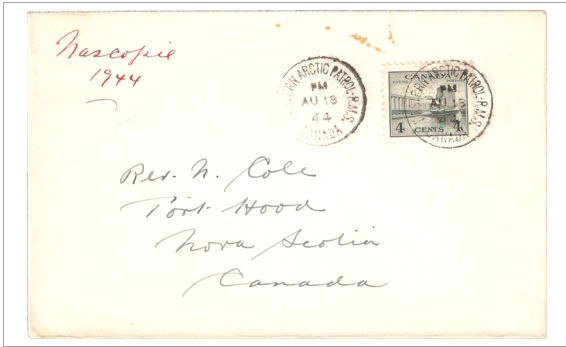 Nascopie
1944
EASTERN ARCTIC PATROL-R.M.S.
PM
AU 18
44
CANADA
CANADA
EASTERN ARCTIC PATROL-R.M.S.
PM
AU 18
44
CANADA
4 CENTS 4
Rev. N. Cole
Port Hood
Nova Scotia
Canada